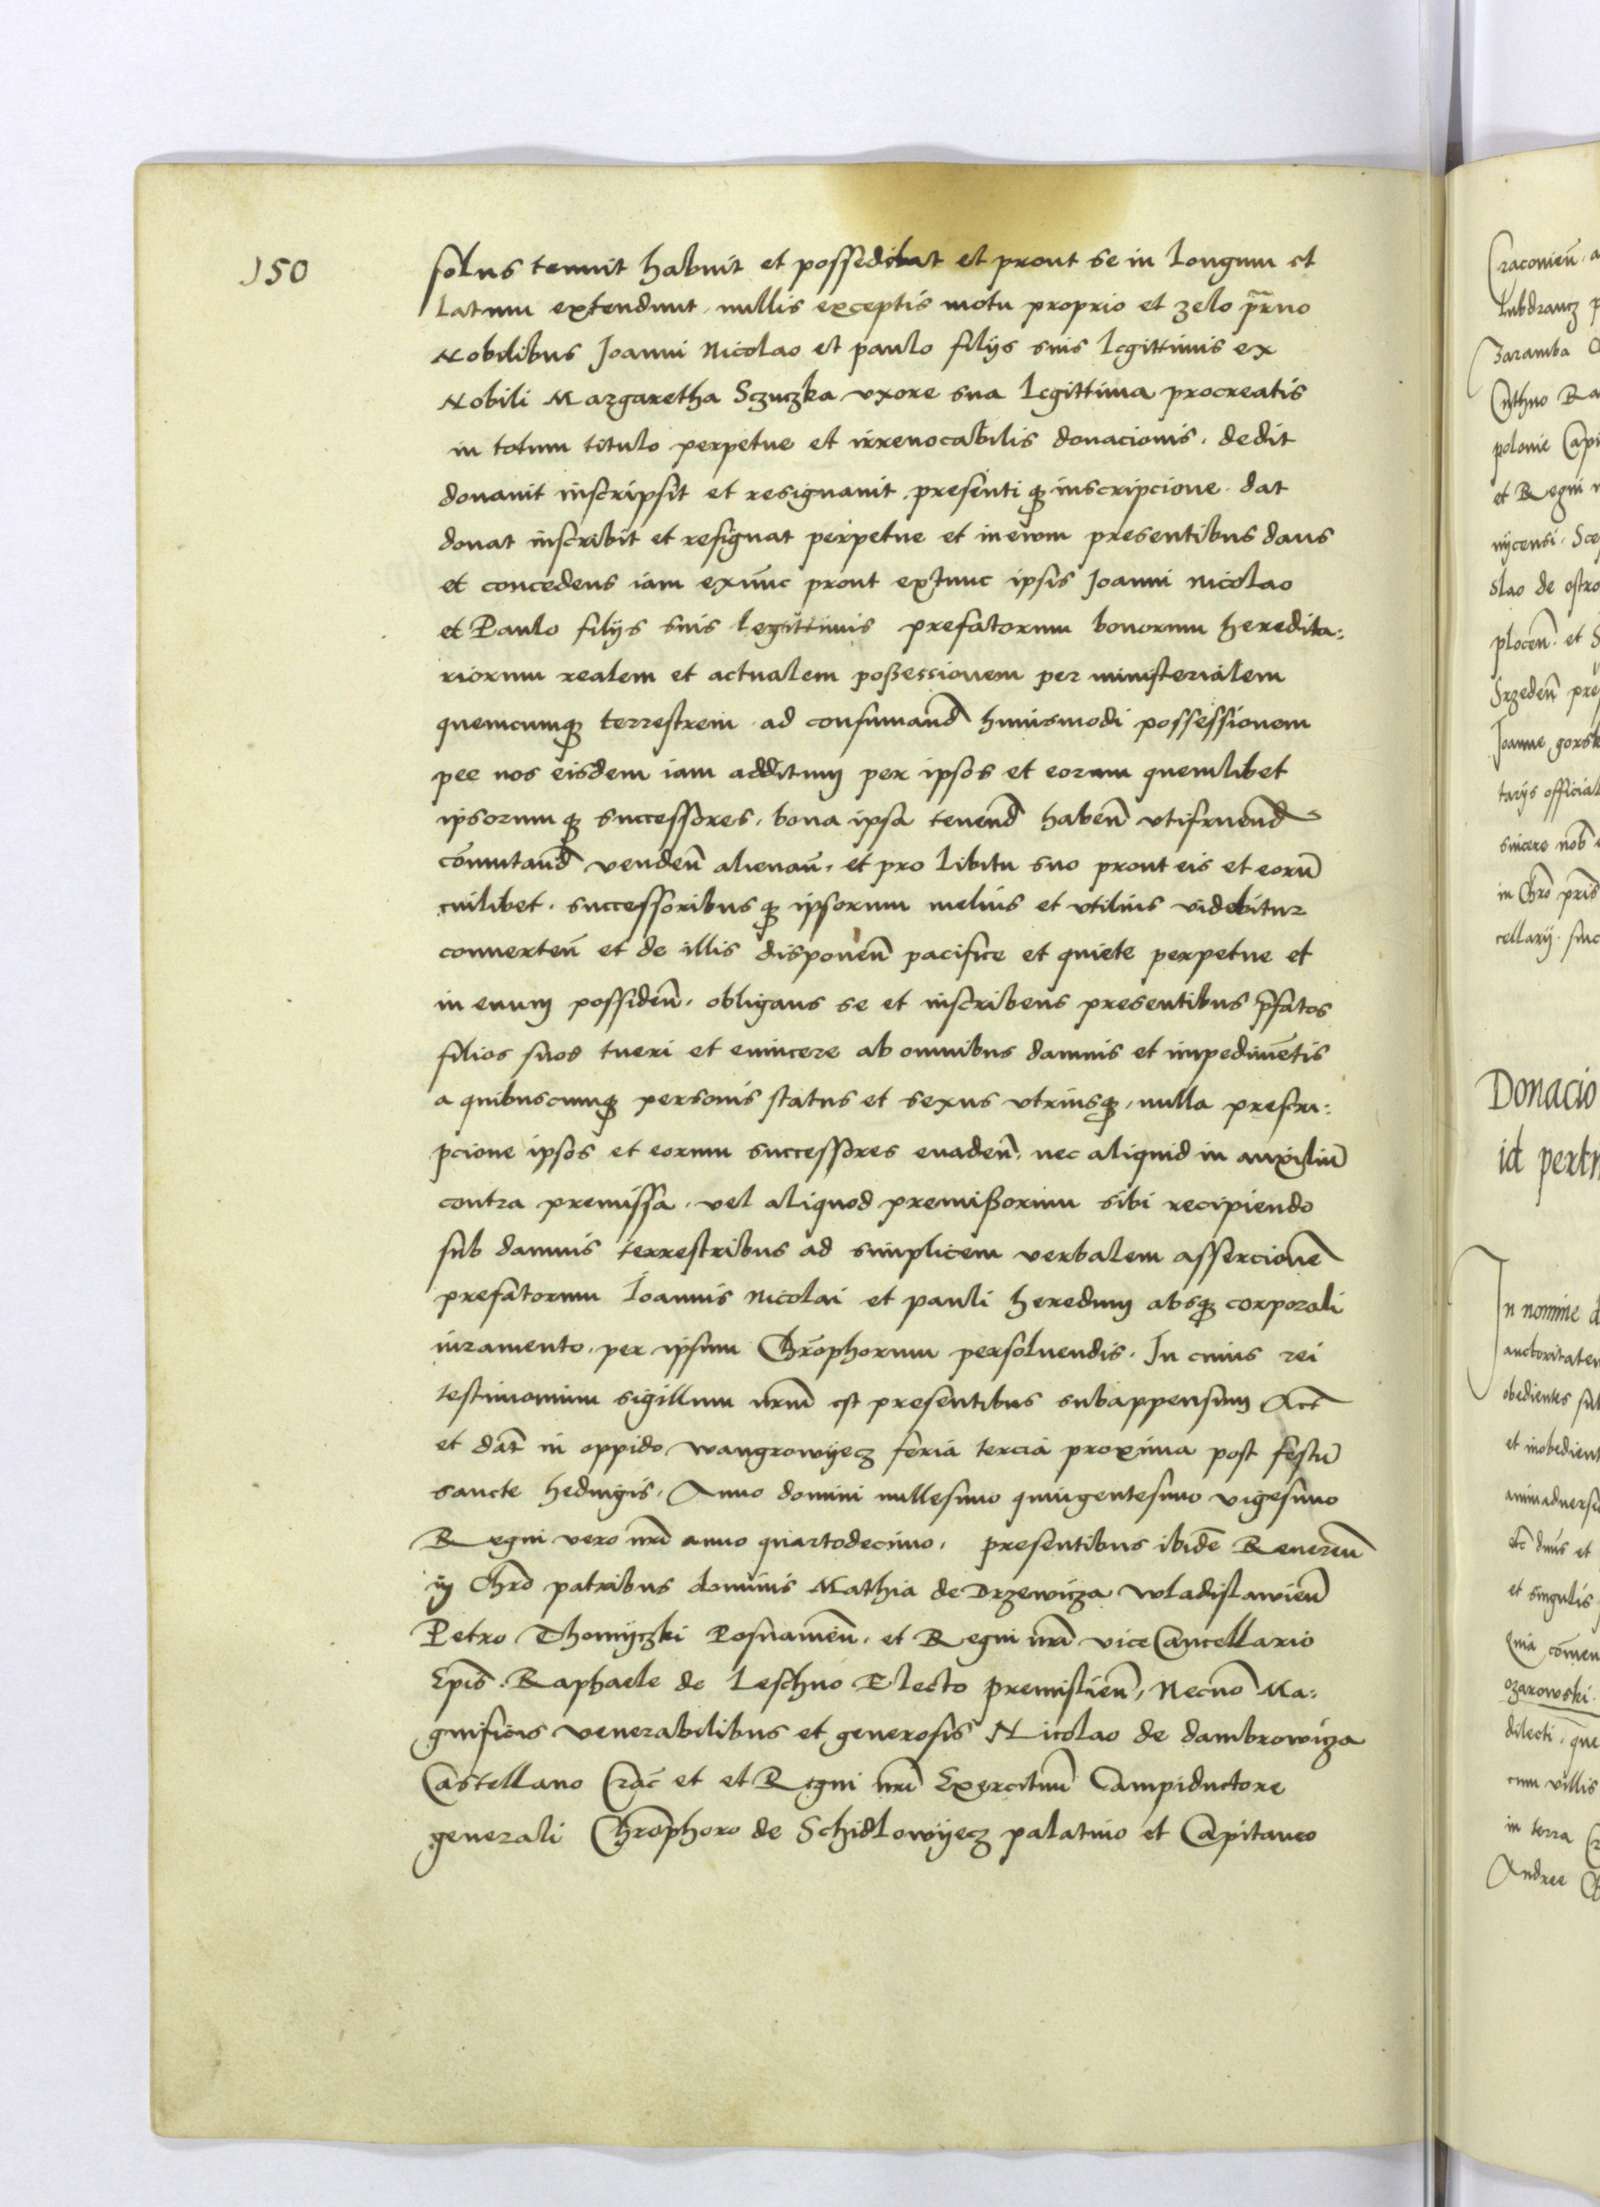 150
solus tenuit habuit et possedibat et prout se in longum et
latum extendunt, nullis exceptis motu proprio et zelo pr̄no
Nobilibus Joanni Nicolao et paulo filijs suis legittimis ex
Nobili Margaretha Sczuczka vxore sua legittima procreatis
in totum titulo perpetue et irreuocabilis donacionis, dedit
donauit inscripsit et resignauit, presentiqꝫ inscripcione dat
donat inscribit et resignat perpetue et in ewm presentibus dans
et concedens iam exnūc prout extunc ipsis Joanni Nicolao
et Paulo filijs suis legittimis prefatorum bonorum heredita:
riorum realem et actualem possessionem per ministerialem
quemcumqꝫ terrestrem ad consumand̄ huiusmodi possessionem
pee nos eisdem iam additum per ipsos et eorum quemlibet
ipsorumqꝫ successores, bona ipsa tenend̄ haben̄ vtifruend̄
com̄utand̄ venden̄ alienan̄, et pro libitu suo prout eis et eorū
cuilibet, successoribusqꝫ ipsorum melius et vtilius videbitur
conuerten̄ et de illis disponen̄ pacifice et quiete perpetue et
in euum possiden̄, obligans se et inscribens presentibus p̄fatos
filios suos tueri et euincere ab omnibus damnis et impedimētis
a quibuscumqꝫ personis status et sexus vtriusqꝫ, nulla prescri:
pcione ipsos et eorum successores euaden̄, nec aliquid in auxiliū
contra premissa, vel aliquod premissorum sibi recipiendo
sub damnis terrestribus ad simplicem verbalem assercionē
prefatorum Joannis Nicolai et pauli heredum absqꝫ corporali
iuramento, per ipsum Chrōphorum persoluendis. In cuius rei
testimonium sigillum nrūm est presentibus subappensum Act̄
et dat̄ in oppido wangrowijecz feria tercia proxima post festū
sancte hedwigis, Anno domini millesimo quingentesimo vigesimo
Regni vero nrī anno quartodecimo, presentibus ibidē Reueren̄
in Chrō patribus dominis Mathia de Drzewicza wladislauien̄
Petro Thomijczki Posnanien̄, et Regni nrī vice Cancellario
Epīs, Raphaele de Leschno Electo premislien̄, Necnō Ma:
gnificis venerabilibus et generosis Nicolao de dambrowicza
Castellano Crac̄ et et Regni nrī Exercituū Campiductore
generali Chrōphoro de Schidlowijecz palatino et Capitaneo
Craconien̄, a
Lubdrancz p
Zaramba
Cuthno Ra
polonie Capi
et Regni
slao de ostro
plocen̄. et S
Srzeden̄ pre
Joanne gorsk
tarijs official
sincere nob̄
in Chrō pris̄
cellarij. sinc
Donacio
id pertn
In nomine d
auctoritatem
obedientes sub
et inobedient
animaduersi
etc̄ dnūs et
et singulis
Quia comen
ozarowski.
dilecti, que
cum villis
in terra Cr
Andree